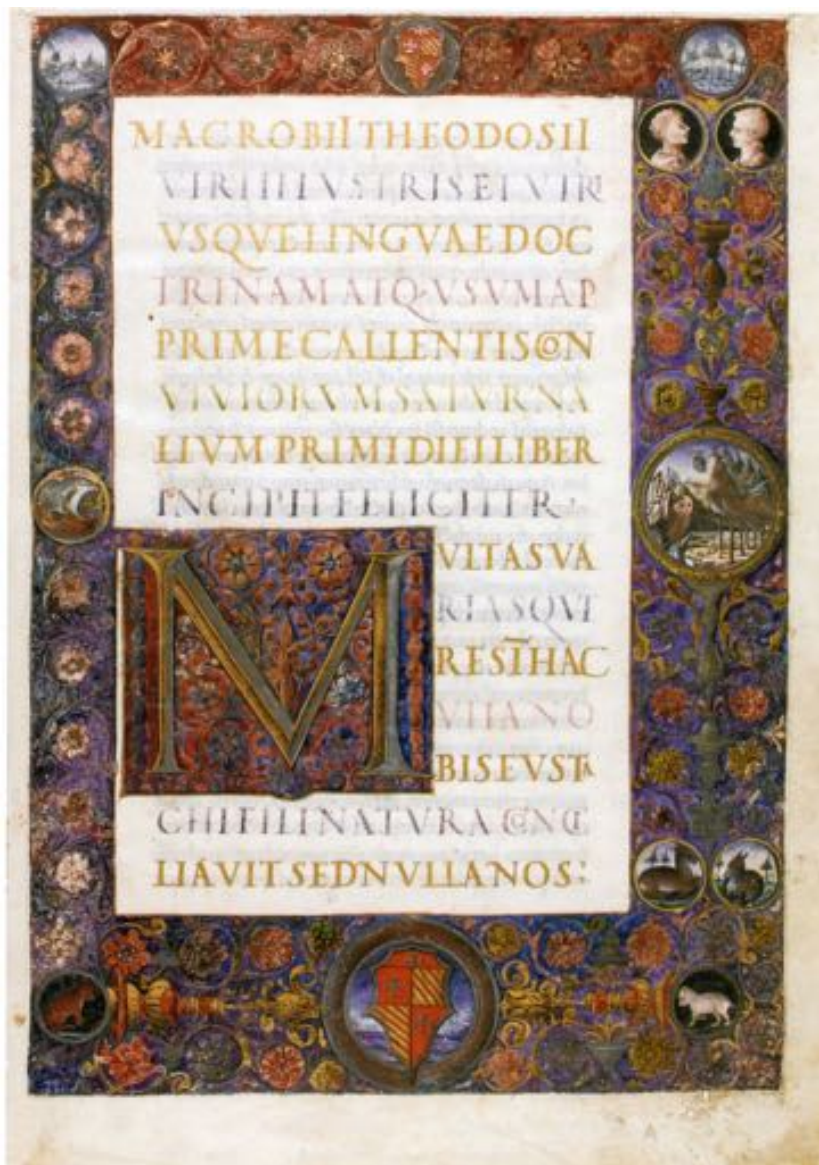 MACROBII THEODOSII
VIRI ILLVSTRIS ET VTRI
VSQVE LINGVAE DOC
TRINAM ATQ·VSVM AP
PRIME CALLENTIS CON
VIVIORVM SATVRNA
LIVM PRIMI DIEI LIBER
INCIPIT FELICITER·
MVLTAS VA
RIASQVE
RES Ī HAC
VITA NO
BIS EVSTA
CHI FILI NATVRA CONCI
LIAVIT SED NVLLA NOS: